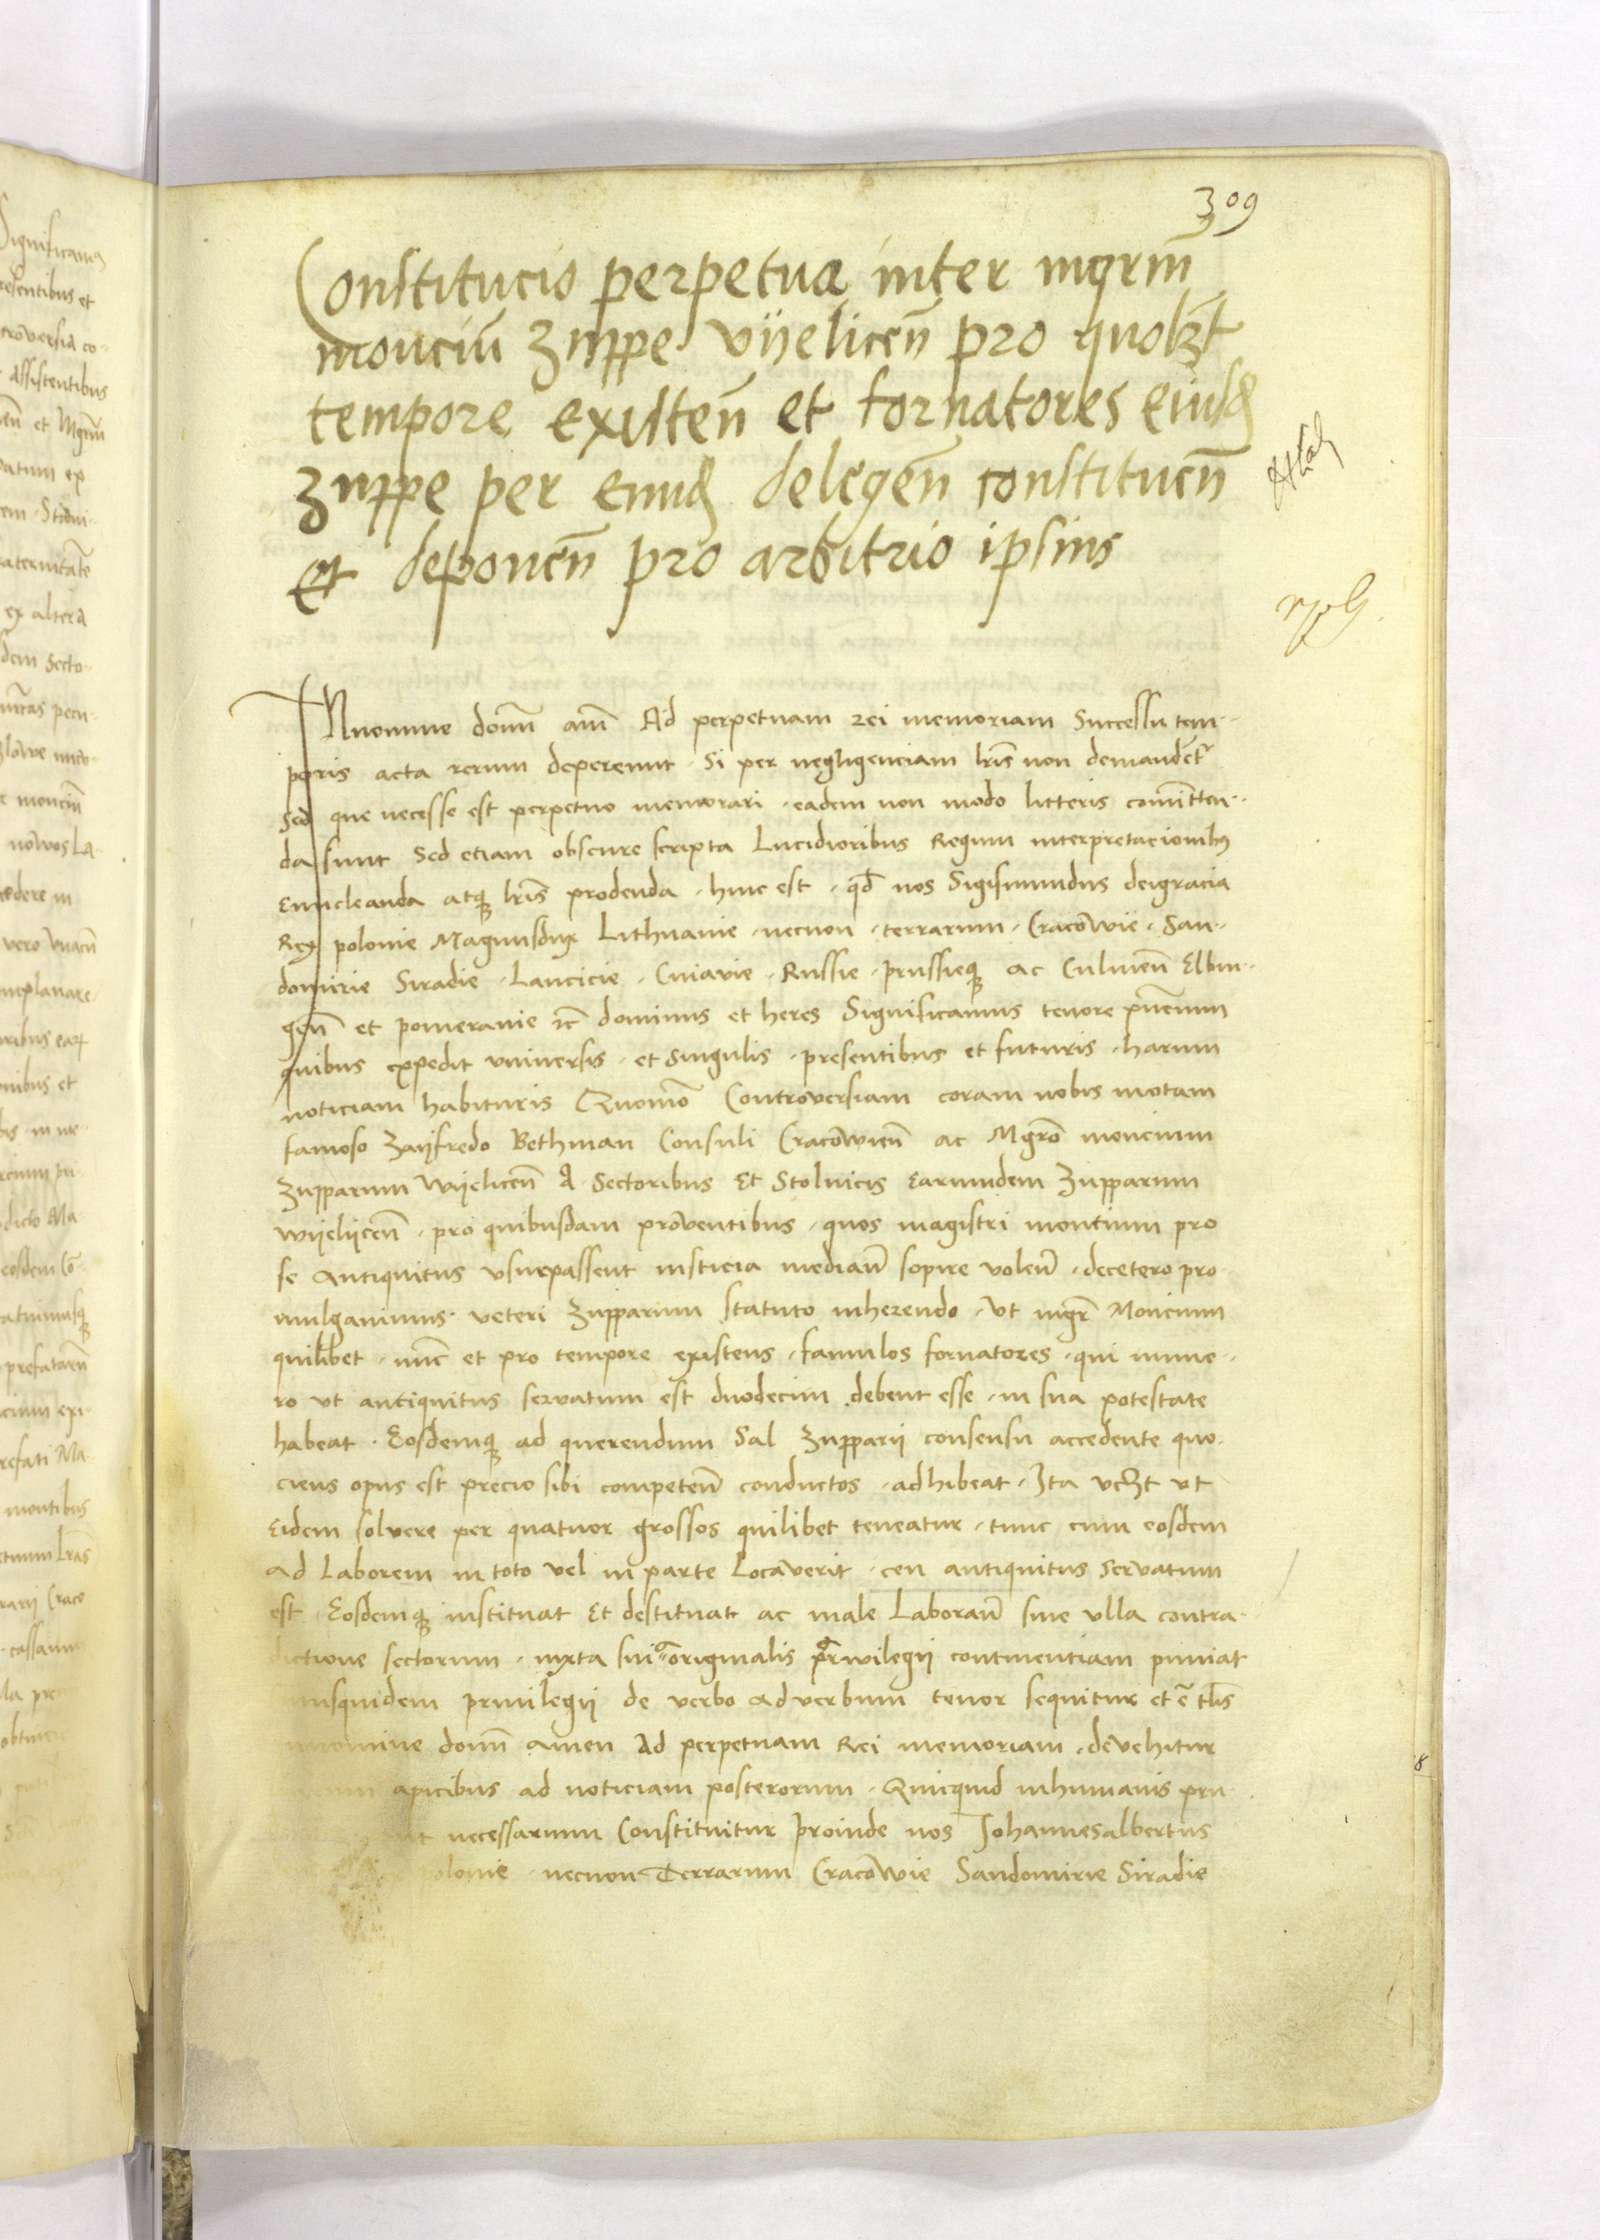 309
Constitucio perpetua inter mgrm̄
monciū zuppe vijelicen̄ pro quolꝫt
tempore existen̄ et fornatores eiusd
zuppe per eund delegen̄ constituen̄
Et deponen̄ pro arbitrio ipsius
IN nomine domī am̄ Ad perpetuam rei memoriam Successu tem-
poris acta rerum depereunt · Si per negligenciam lrīs non demandet̄r
Sed que necesse est perpetuo memorari · eadem non modo litteris comitten-
da sunt Sed etiam obscure scripta Lucidioribus Regum interpretacionibꝯ
Enucleanda atqꝫ lrīs prodenda · hinc est · qd̄ nos Sigismundus deigracia
Rex polonie Magnusdux Lithuanie · necnon · terrarum · Cracowie · San-
domirie Siradie · Lancicie · Cuiavie · Russie · prussieqꝫ ac Culmen̄ Elbin-
gen̄ et pomeranie zc̄ dominus et heres Significamus tenore pn̄cium
quibus expedit universis · et singulis · presentibus et futuris · harum
noticiam habituris Quomō Controversiam coram nobis motam
famoso Zayfredo Bethman Consuli Cracowien̄ ac Mgrō moncium
Zupparum Wyelicen̄ A Sectoribus Et Stolnicis Earundem Zupparum
wyelycen̄ · pro quibusdam proventibus · quos magistri montium pro
se Antiquitus usurpassent iusticia median̄ sopire volen̄ · decetero pro-
mulgavimus · veteri Zupparum statuto inherendo · Ut mgr̄ Moncium
quilibet · nūc et pro tempore existens · famulos fornatores · qui nume-
ro ut antiquitus servatum est duodecim debent esse · in sua potestate
habeat · Eosdemqꝫ ad querendum Sal Zupparij consensu accedente quo-
ciens opus est precio sibi competen̄ conductos · adhibeat · Ita vcꝫt ut
Eidem solvere per quatuor grossos quilibet teneatur · tunc cum eosdem
Ad Laborem in toto vel in parte Locaverit · ceu antiquitus servatum
est · Eosdemqꝫ instituat Et destituat ac male Laboran̄ sine ulla contra-
dictione sectorum · iuxta sui originalis privilegii continentiam puniat
usquidem privilegij de verbo Ad verbum tenor sequitur et ē tlīs
nomine domī Amen Ad perpetuam Rei memoriam · devehitur
apicibus ad noticiam posterorum · Quicquid inhumanis pru-
necessarium Constituitur proinde nos Johannesalbertus
polonie · necnon Terrarum Cracowie Sandomirie Siradie